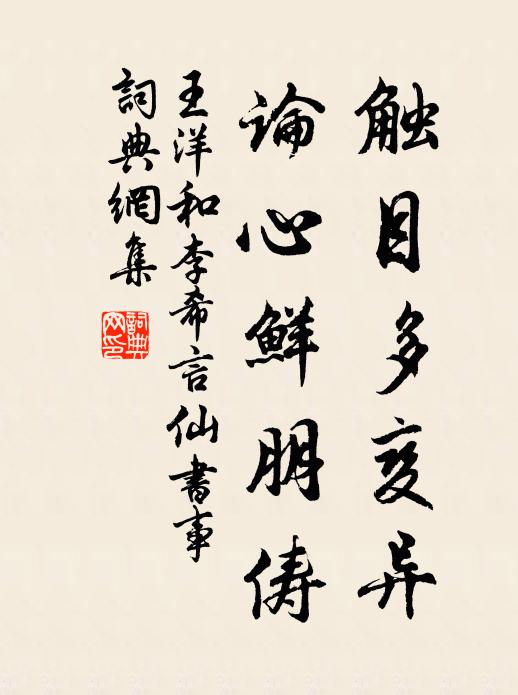 触目多变异
論心鮮朋俦
王洋和李希言仙書事
詞典網集
詞典
网印